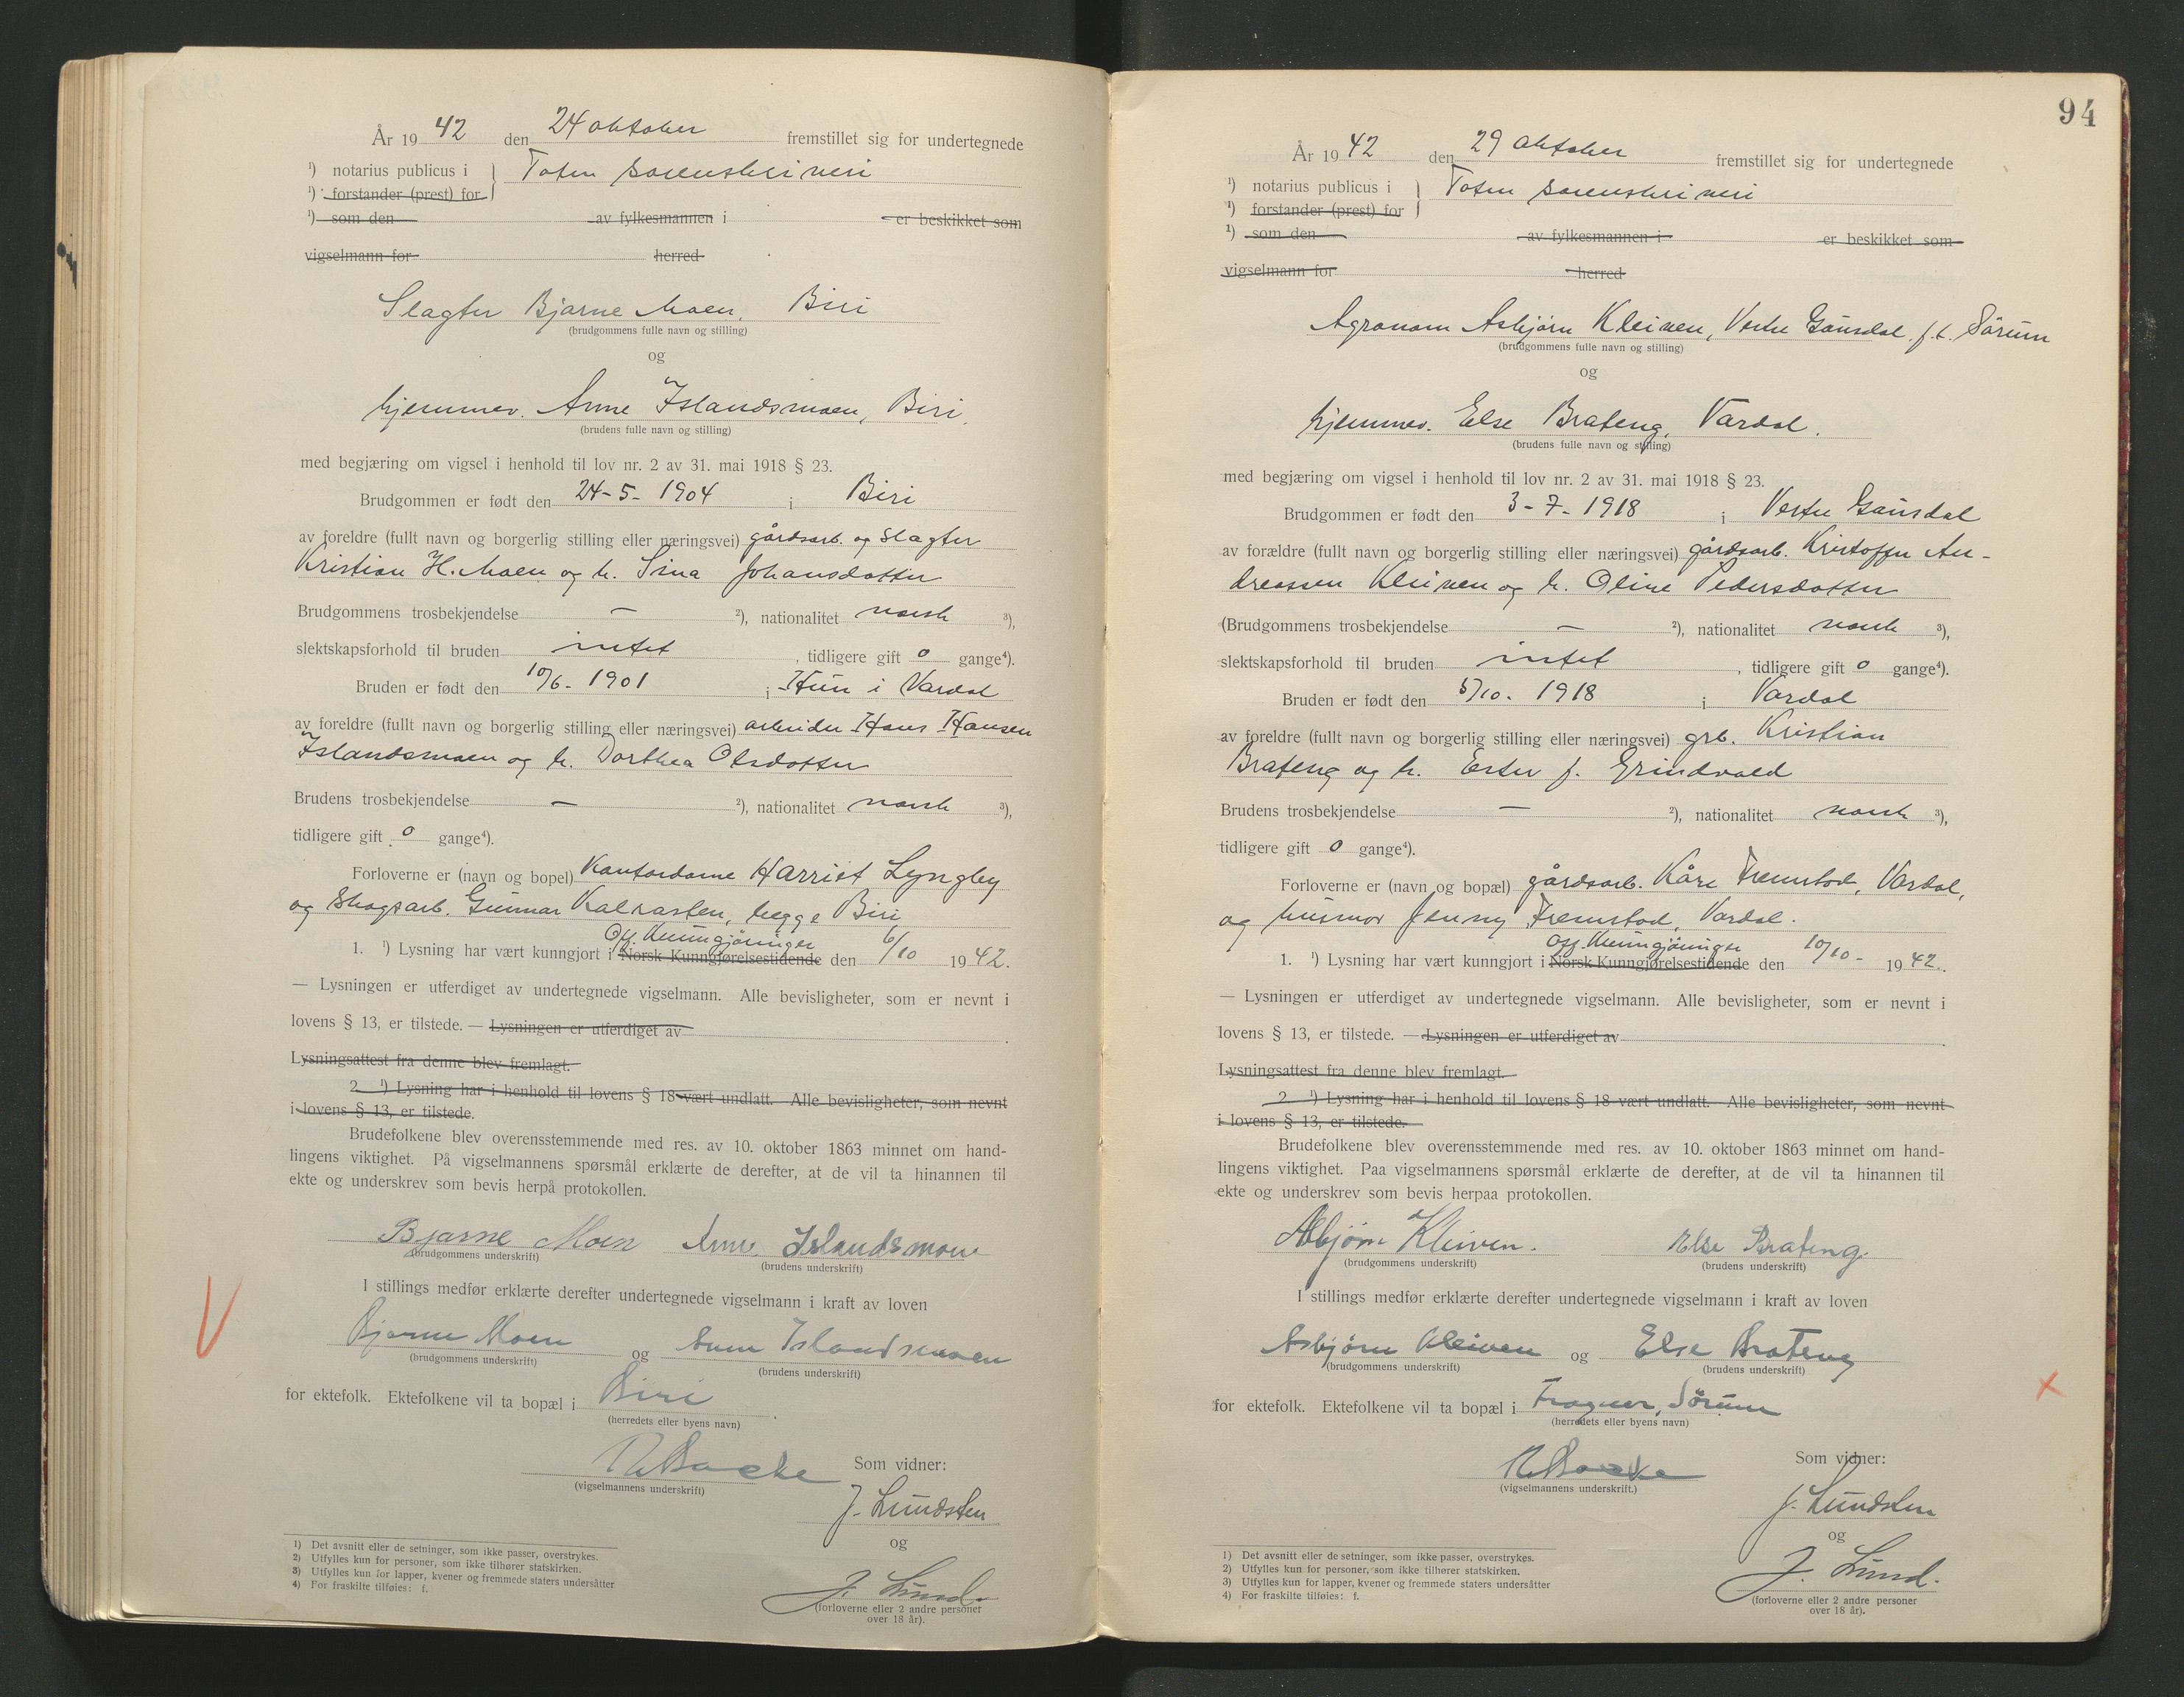 År 19 42 den 24 oktober fremstillet sig for undertegnede
¹) notarius publicus i } Toten sorenskriveri
¹) forstander (prest) for
¹) som den av fylkesmannen i er beskikket som
vigselmann for herred
Slagter Bjarne Moen, Biri
(brudgommens fulle navn og stilling)
og
hjemmev. Anne Islandsmoen, Biri.
(brudens fulle navn og stilling)
med begjæring om vigsel i henhold til lov nr. 2 av 31. mai 1918 § 23.
Brudgommen er født den 24-5-1904 i Biri
av foreldre (fullt navn og borgerlig stilling eller næringsvei) gårdsarb. og slagter
Kristian H. Moen og h. Sina Johansdatter
Brudgommens trosbekjendelse — ²), nationalitet norsk ³),
slektskapsforhold til bruden intet, tidligere gift 0 gange⁴).
Bruden er født den 10/6-1901 i Hun i Vardal
av foreldre (fullt navn og borgerlig stilling eller næringsvei) arbeider Hans Hansen
Islandsmoen og h. Dorthea Olsdotter
Brudens trosbekjendelse — ²), nationalitet norsk ³),
tidligere gift 0 gange⁴).
Forloverne er (navn og bopel) Kontordame Harriet Lyngby
og skogsarb. Gunnar Kalrasten, begge Biri
Off. Kunngjøringer
1. ¹) Lysning har vært kunngjort i Norsk Kunngjørelsestidende den 6/10 1942.
— Lysningen er utferdiget av undertegnede vigselmann. Alle bevisligheter, som er nevnt i
lovens § 13, er tilstede. — Lysningen er utferdiget av
Lysningsattest fra denne blev fremlagt.
2. ¹) Lysning har i henhold til lovens § 18 vært undlatt. Alle bevisligheter, som nevnt
i lovens § 13, er tilstede.
Brudefolkene blev overensstemmende med res. av 10. oktober 1863 minnet om hand-
lingens viktighet. På vigselmannens spørsmål erklærte de derefter, at de vil ta hinannen til
ekte og underskrev som bevis herpå protokollen.
Bjarne Moen Anne Islandsmoen
(brudgommens underskrift) (brudens underskrift)
I stillings medfør erklærte derefter undertegnede vigselmann i kraft av loven
Bjarne Moen og Anne Islandsmoen
(brudgommens underskrift) (brudens underskrift)
for ektefolk. Ektefolkene vil ta bopæl i Biri
(herredets eller byens navn)
Som vidner:
(vigselmannens underskrift)
J. Lundsten
og
J. Lund.
(forloverne eller 2 andre personer
over 18 år).
1) Det avsnitt eller de setninger, som ikke passer, overstrykes.
2) Utfylles kun for personer, som ikke tilhører statskirken.
3) Utfylles kun for lapper, kvener og fremmede staters undersåtter
4) For fraskilte tilføies: f.
94
År 19 42 den 29 oktober fremstillet sig for undertegnede
¹) notarius publicus i } Toten sorenskriveri
¹) forstander (prest) for
¹) som den av fylkesmannen i er beskikket som
vigselmann for herred
Agronom Asbjørn Kleiven, Vestre Gausdal, f.t. Sørum
(brudgommens fulle navn og stilling)
og
hjemmev. Else Brateng, Vardal.
(brudens fulle navn og stilling)
med begjæring om vigsel i henhold til lov nr. 2 av 31. mai 1918 § 23.
Brudgommen er født den 3-7-1918 i Vestre Gausdal
av forældre (fullt navn og borgerlig stilling eller næringsvei) gårdsarb. Kristoffer An-
dreassen Kleiven og h. Oline Pedersdatter
(Brudgommens trosbekjendelse — ²), nationalitet norsk ³),
slektskapsforhold til bruden intet, tidligere gift 0 gange⁴).
Bruden er født den 5/10. 1918 i Vardal
av foreldre (fullt navn og borgerlig stilling eller næringsvei) grb. Kristian
Brateng og h. Ester f. Grindvold
Brudens trosbekjendelse — ²), nationalitet norsk ³),
tidligere gift 0 gange⁴).
Forloverne er (navn og bopæl) gårdsarb. Kåre Fremstad, Vardal,
og husmor Jenny Fremstad, Vardal.
Off. Kunngjøringer
1. ¹) Lysning har vært kunngjort i Norsk Kunngjørelsestidende den 10/10- 1942.
— Lysningen er utferdiget av undertegnede vigselmann. Alle bevisligheter, som er nevnt i
lovens § 13, er tilstede. — Lysningen er utferdiget av
Lysningsattest fra denne blev fremlagt.
2. ¹) Lysning har i henhold til lovens § 18 vært undlatt. Alle bevisligheter, som nevnt
i lovens § 13, er tilstede.
Brudefolkene blev overensstemmende med res. av 10. oktober 1863 minnet om hand-
lingens viktighet. Paa vigselmannens spørsmål erklærte de derefter, at de vil ta hinannen til
ekte og underskrev som bevis herpaa protokollen.
Asbjørn Kleiven. Else Brateng.
(brudgommens underskrift) (brudens underskrift)
I stillings medfør erklærte derefter undertegnede vigselmann i kraft av loven
Asbjørn Kleiven og Else Brateng
(brudgommens underskrift) (brudens underskrift)
for ektefolk. Ektefolkene vil ta bopæl i Frogner, Sørum
(herredets eller byens navn)
Som vidner:
(vigselmannens underskrift.)
J. Lundsten
og
J. Lund.
(forloverne eller 2 andre personer
over 18 år).
1) Det avsnitt eller de setninger, som ikke passer, overstrykes.
2) Utfylles kun for personer, som ikke tilhører statskirken.
3) Utfylles kun for lapper, kvener og fremmede staters undersåtter
4) For fraskilte tilføies: f.